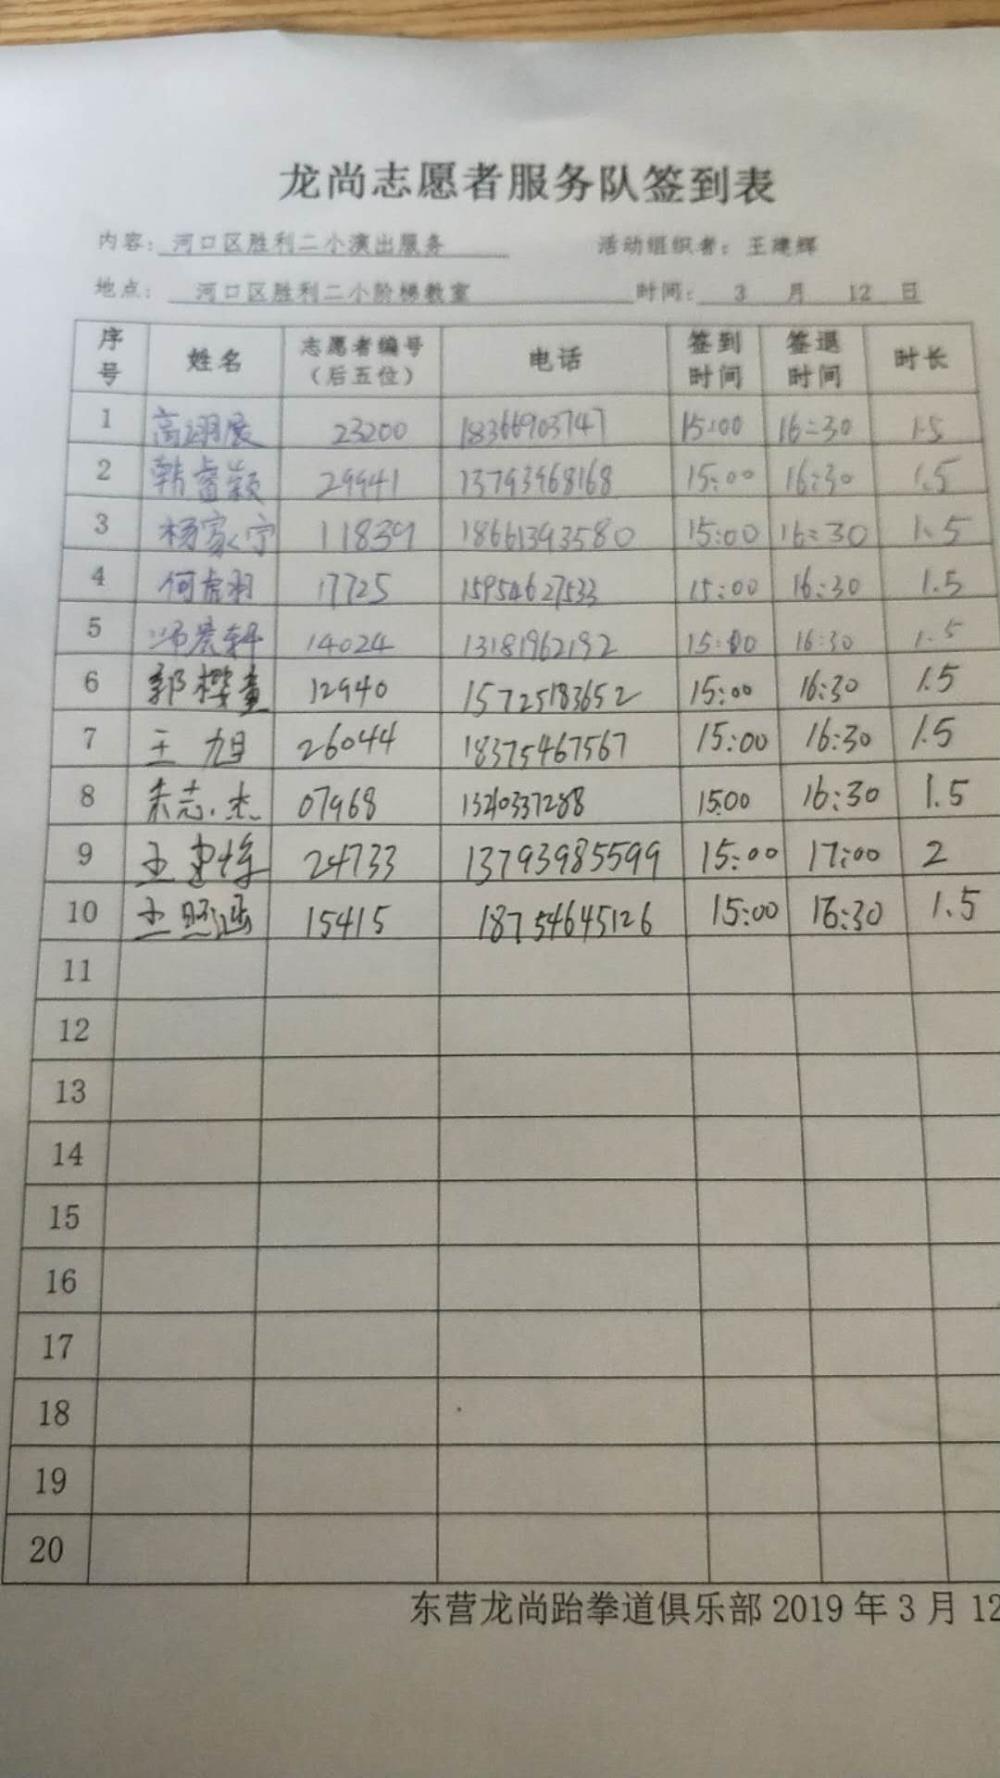 龙尚志愿者服务队签到表
内容：河口区胜利二小演出服务 活动组织者：王建辉
地点：河口区胜利二小阶梯教室 时间：3 月 12 日
序号 姓名 志愿者编号（后五位） 电话 签到时间 签退时间 时长
1 高翊展 23200 18366903747 15:00 16:30 1.5
2 韩睿颖 29941 13793968168 15:00 16:30 1.5
3 杨家宁 11839 18661393580 15:00 16:30 1.5
4 何虎羽 17725 15954627533 15:00 16:30 1.5
5 14024 13181962192 15:00 16:30 1.5
6 郭樱童 12940 15725183652 15:00 16:30 1.5
7 王旭 26044 18375467567 15:00 16:30 1.5
8 朱志杰 07968 15:00 16:30 1.5
9 王 24733 13793985599 15:00 17:00 2
10 王照涵 15415 18754645126 15:00 16:30 1.5
11
12
13
14
15
16
17
18
19
20
东营龙尚跆拳道俱乐部 2019 年 3 月 12